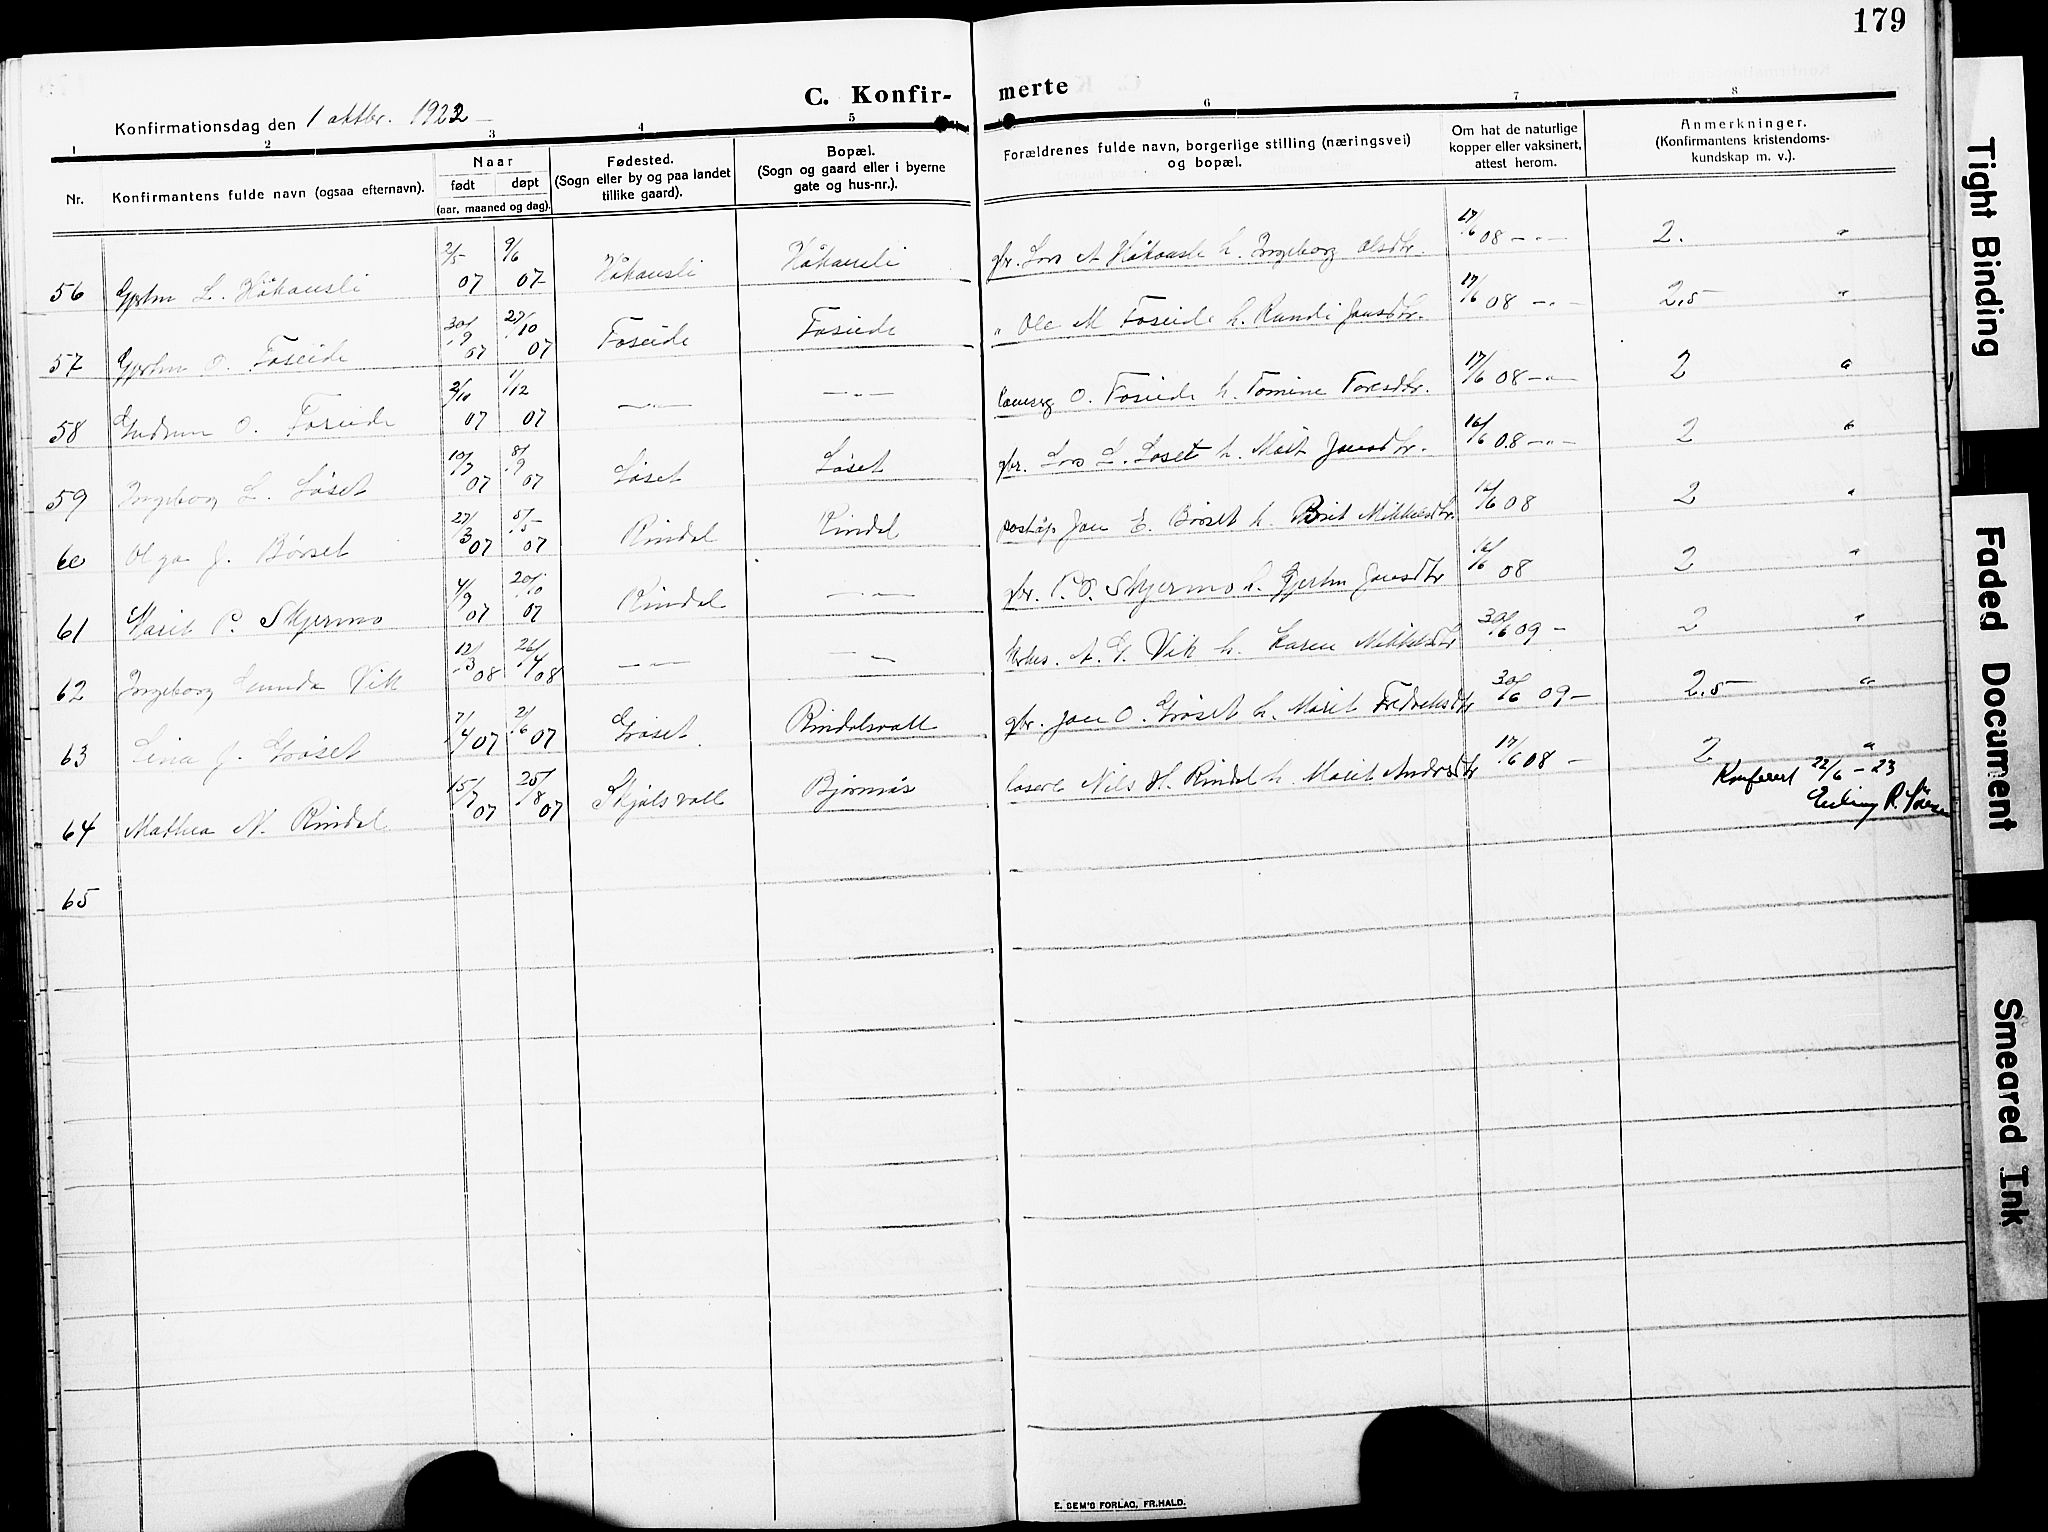 179
C. Konfir-merte
Konfirmationsdag den 1 oktbr. 1922
1 2 3 4 5 6 7 8
Nr.
Konfirmantens fulde navn (ogsaa efternavn).
Naar
født døpt
(aar, maaned og dag).
Fødested.
(Sogn eller by og paa landet
tillike gaard).
Bopæl.
(Sogn og gaard eller i byerne
gate og hus-nr.).
Forældrenes fulde navn, borgerlige stilling (næringsvei)
og bopæl.
Om hat de naturlige
kopper eller vaksinert,
attest herom.
Anmerkninger.
(Konfirmantens kristendoms-
kundskap m. v.).
56 Gjertru L. Håkansli 2/5 07 9/6 07 Håkansli Håkansli gbr. Lars A Håkansli h. Ingeborg Olsdtr. 17/6 08 -"- 2. "
57 Gjertru O. Foseide 30/9 07 27/10 07 Foseide Foseide " Ole M Foseide h. Randi Jonsdtr. 17/6 08 -"- 2.5 "
58 Gudrun O. Foseide 2/10 07 1/12 07 -"- -"- O. Foseide h. Tomine Toresdtr. 17/6 08 -"- 2 "
59 Ingeborg L. Løset 10/7 07 8/9 07 Løset Løset gbr. Lars L. Løset h. Marit Jonsdtr. 16/6 08 -"- 2 "
60 Olga J. Børset 27/3 07 5/5 07 Rindal Rindal poståp. Jon E. Børset h. Brit Mikkelsdtr. 16/6 08 2 "
61 Marit P. Skjermo 4/9 07 20/10 07 Rindal -"- gbr. P. P. Skjermo h. Gjertru Jonsdtr 16/6 08 2 "
62 Ingeborg Gunda Vik 12/3 08 26/4 08 -"- -"- A. G. Vik h. Karen Mikkelsdtr 30/6 09 - 2 "
63 Lina J. Grøset 7/4 07 2/6 07 Grøset Rindalsvoll gbr. Jon O. Grøset h. Marit Fredriksdtr 30/6 09 - 2.5 "
64 Mathea N. Rindal 15/7 07 25/8 07 Skjølsvoll Bjørnås Nils H. Rindal h. Marit Andersdtr 17/6 08 - 2 "
Konferert 22/6 - 23
Erling R.
65
E. SEM'S FORLAG, FR.HALD.
Tight Binding
Faded Document
Smeared Ink